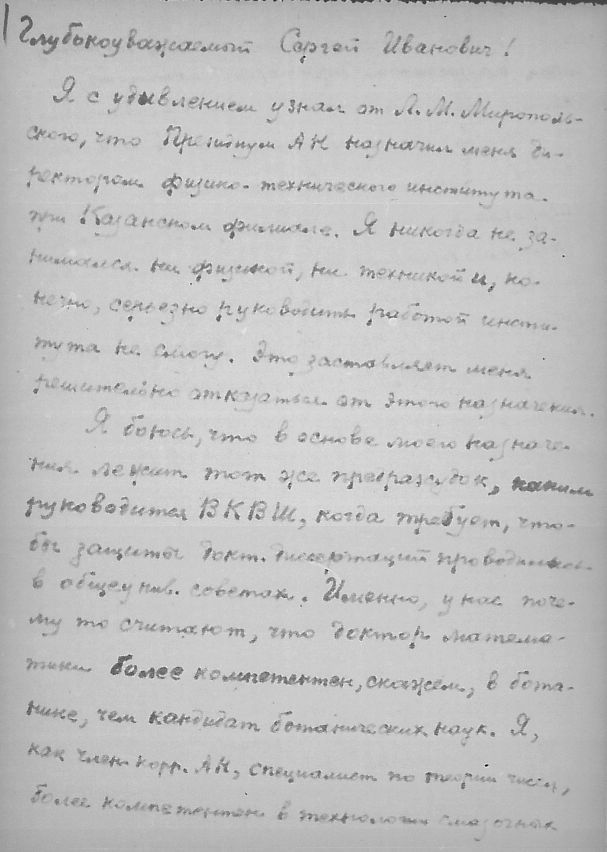 Глубокоуважаемый Сергей Иванович!
Я с удивлением узнал от Л. М. Мирополь-
ского, что Президиум АН назначил меня ди-
ректором физико-технического института
при Казанском филиале. Я никогда не за-
нимался ни физикой, ни техникой и, ко-
нечно, серьезно руководить работой инсти-
тута не смогу. Это заставляет меня
решительно отказаться от этого назначения.
Я боюсь, что в основе моего назначе-
ния лежит тот же предрассудок, каким
руководится ВКВШ, когда требует, что-
бы защиты докт. диссертаций проводились
в общеунив. советах. Именно, у нас поче-
му то считают, что доктор матема-
тики более компетентен, скажем, в бота-
нике, чем кандидат ботанических наук. Я,
как член корр. АН, специалист по теории чисел,
более компетентен в технологии смазочных